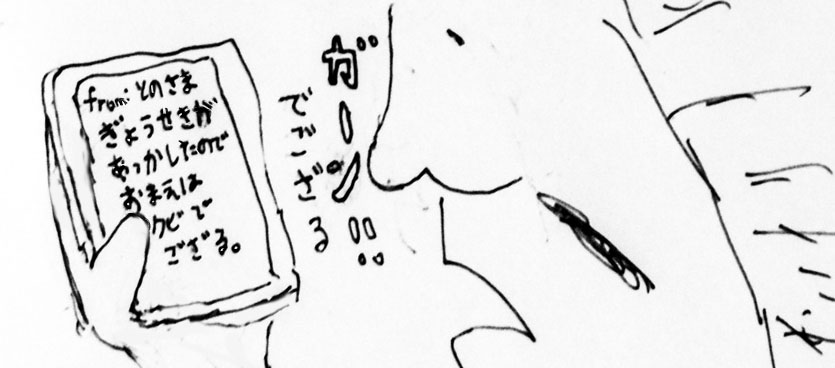 from:とのさま
ぎょうせきが
あっかしたので
おまえは
クビで
ござる。
ガーーン!!
でござる